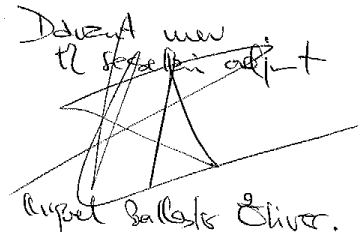 Davant meu
El secretari adjunt
Miquel Ballester Oliver.